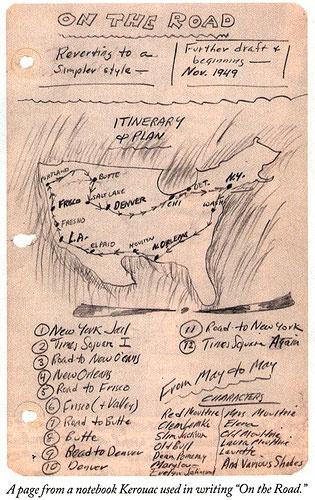 ON THE ROAD
Reverting to a
Simpler style —
Further draft &
beginning —
Nov. 1949
ITINERARY
& PLAN
PORTLAND
BUTTE
SALT LAKE
FRISCO
DENVER
CHI
DET.
N.Y.
WASH.
FRESNO
L.A.
EL PASO
HOUSTON
N. ORLEANS
1 New York Jail
2 Times Square I
3 Road to New O'leans
4 New Orleans
5 Road to Frisco
6 Frisco (+ Valley)
7 Road to Butte
8 Butte
9 Road to Denver
10 Denver
11 Road to New York
12 Times Square Again
From May to May
CHARACTERS
Red Moultrie
Slim Jackson
Old Bull
Dean Pomeray
Marylou
Evelyn Johnson
Mrs. Moultrie
Elena
Old Moultrie
Laura Moultrie
Laurette
And Various Shades
A page from a notebook Kerouac used in writing "On the Road."